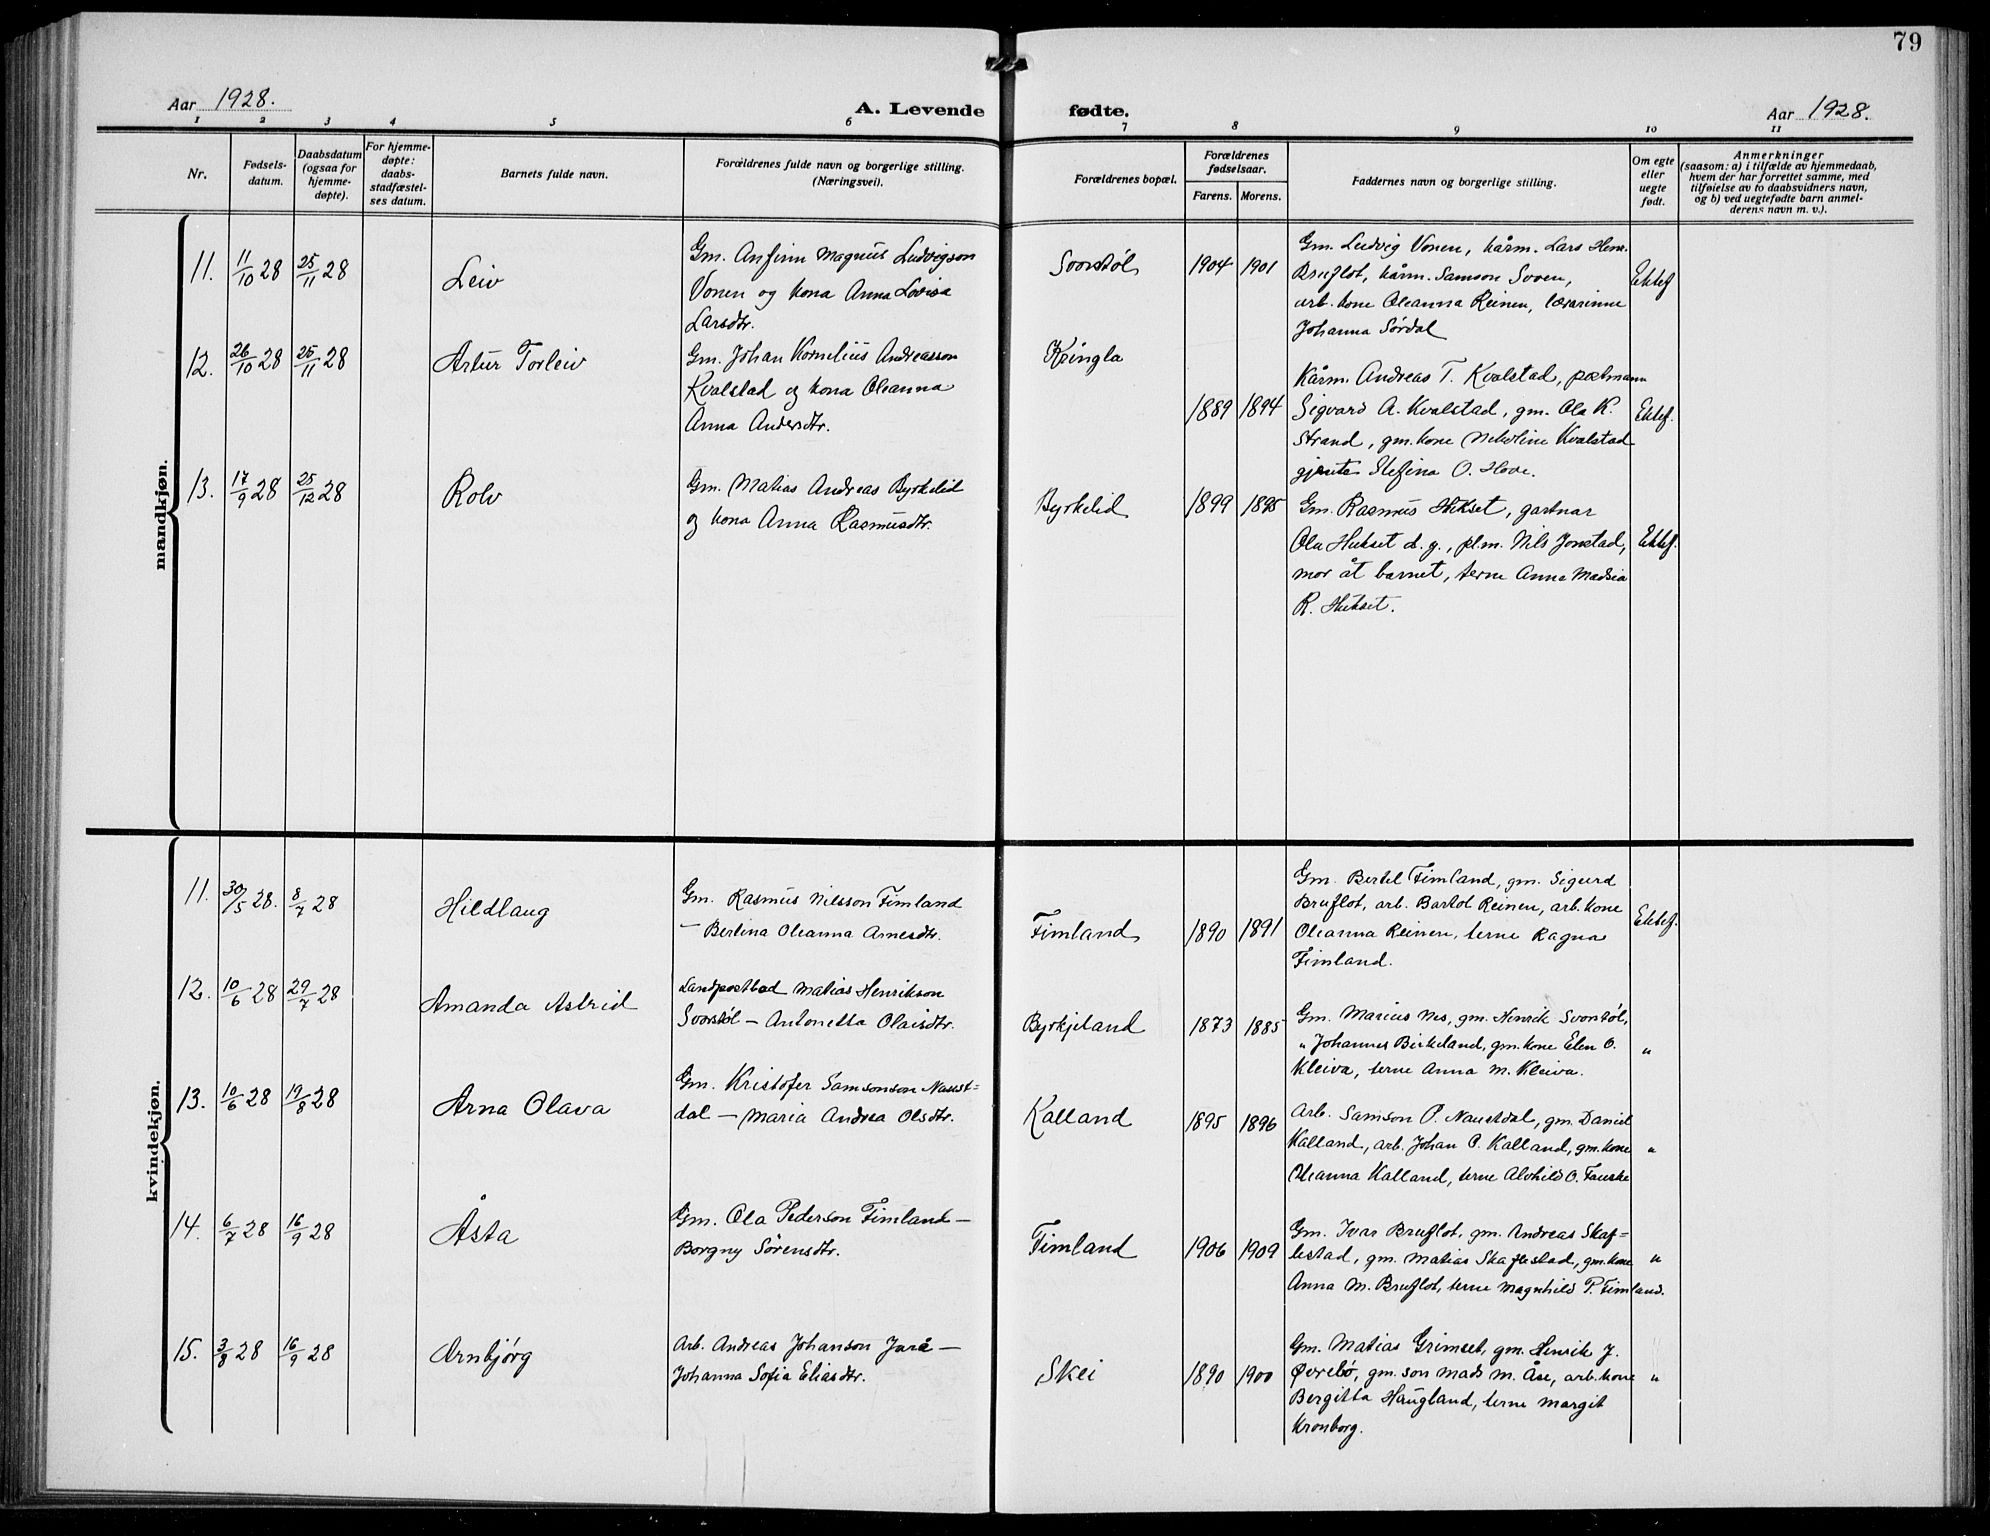 79
Aar 1928.
A. Levende fødte.
Aar 1928.
1 2 3 4 5 6 7 8 9 10 11
Nr.
Fødsels-
datum.
Daabsdatum
(ogsaa for
hjemme-
døpte).
For hjemme-
døpte:
daabs-
stadfæstel-
ses datum.
Barnets fulde navn.
Forældrenes fulde navn og borgerlige stilling.
(Næringsvei).
Forældrenes bopæl.
Forældrenes
fødselsaar.
Farens. Morens.
Faddernes navn og borgerlige stilling.
Om egte
eller
uegte
født.
Anmerkninger
(saasom: a) i tilfælde av hjemmedaab,
hvem der har forrettet samme, med
tilføielse av to daabsvidners navn,
og b) ved uegtefødte barn anmel-
derens navn m. v.).
mandkjøn.
11. 11/10 28 25/11 28 Leiv
Gm. Anfinn Magnus Ludvigson
Vonen og kona Anna Lovisa
Larsdtr.
Svorstøl 1904 1901
Gm. Ludvig Vonen, kårm. Lars Henr.
Bruflot, kårm. Samson Svoen,
arb. kone Oleanna Reinen, lærarinne
Johanna Sørdal
Ektef
12. 26/10 28 25/11 28 Artur Torleiv
Gm. Johan Kornelius Andreasson
Kvalstad og kona Oleanna
Anna Andersdtr.
Kringla 1889 1894
Kårm. Andreas T. Kvalstad, postmann
Sigvard A. Kvalstad, gm. Ola K.
Strand, gm. kone Nikoline Kvalstad
gjente Stefina O. Hove.
Ektef.
13. 17/9 28 25/12 28 Rolv
Gm. Matias Andreas Byrkelid
og kona Anna Rasmusdtr.
Byrkelid 1899 1895
Gm. Rasmus Hukset, gartnar
Ola Hukset d. y., pl.m. Nils Jonstad,
mor åt barnet, terne Anna Madsia
R. Hukset.
Ektef.
kvindekjøn.
11. 30/5 28. 8/7 28 Hildlaug
Gm. Rasmus Nilsson Fimland
— Bertina Oleanna Arnesdtr.
Fimland 1890 1891
Gm. Bertel Fimland, gm. Sigurd
Bruflot, arb. Bartol Reinen, arb. kone
Oleanna Reinen, terne Ragna
Fimland.
Ektef.
12. 10/6 28 29/7 28 Amanda Astrid
Landpostbod Matias Henrikson
Svorstøl — Antonetta Olaisdtr.
Byrkjeland 1873 1885
Gm. Marius Nes, gm. Henrik Svorstøl,
„ Johannes Birkeland, gm. kone Elen O.
Kleiva, terne Anna M. Kleiva.
„
13. 10/6 28 19/8 28 Arna Olava
Gm. Kristofer Samsonson Naust=
dal — Maria Andrea Olsdtr.
Kalland 1895 1896
Arb. Samson P. Naustdal, gm. Daniel
Kalland, arb. Johan P. Kalland, gm. kone
Oleanna Kalland, terne Alvhild O. Fauske
„
14. 6/7 28 16/9 28 Åsta
Gm. Ola Pederson Fimland —
Borgny Sørensdtr.
Fimland 1906 1909
Gm. Ivar Bruflot, gm. Andreas Skaf=
lestad, gm. Matias Skaflestad, gm. kone
Anna M. Bruflot, terne Magnhild P. Fimland.
„
15. 3/8 28 16/9 28 Arnbjørg
Arb. Andreas Johanson Jarå —
Johanna Sofia Eliasdtr.
Skei 1890 1900
Gm. Matias Grimset, gm. Henrik J.
Øvrebø, gm. son Mads M. Åse, arb. kone
Bergitta Haugland, terne Margit
Kronborg.
„